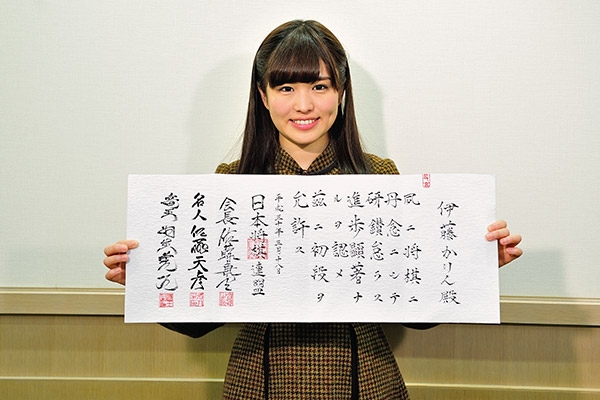 伊藤かりん殿
夙ニ将棋ニ
丹念ニシテ
研鑽怠ラス
進歩顕著ナ
ルヲ認メ
茲ニ初段ヲ
允許ス
平成三十年
日本将棋連盟
会長 佐藤康光
名人 佐藤天彦
竜王 羽生善治